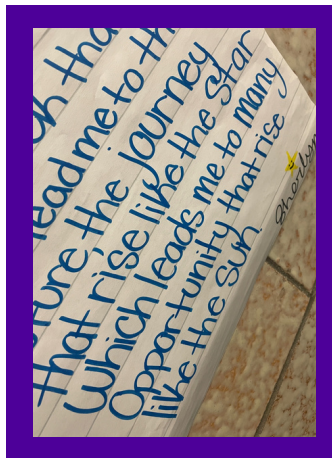 tha
lead me to th
ture the journey
that rise like the star
Which leads me to many
Opportunity that rise
like the sun.